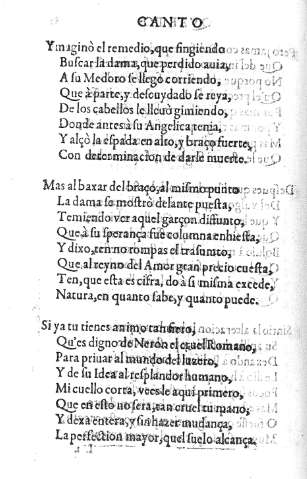 CANTO
Ymaginò el remedio, que fingiendo
Buscar la dama, que perdido auia,
A su Medoro se llegò corriendo,
Que à parte, y descuydado se reya,
De los cabellos le lleuò gimiendo,
Donde antes à su Angelica tenia,
Y alçò la espada en alto, y braço fuerte,
Con determinacion de darle muerte.
Mas al baxar del braço, al mismo punto
La dama se mostrò delante puesta,
Temiendo ver aquel garçon difunto,
Que à su sperança fue columna enhiesta,
Y dixo, ten no rompas el trasunto,
Que al reyno del Amor gran precio cuesta,
Ten, que esta es cifra, do à si misma excede,
Natura, en quanto sabe, y quanto puede.
Si ya tu tienes animo tan fiero,
Qu'es digno de Neron el cruel Romano,
Para priuar al mundo del luzero,
Y de su Idea al resplandor humano,
Mi cuello corta, vees le aqui primero,
Que en esto no sera tan cruel tu mano,
Y dexa entera, y sin hazer mudança,
La perfection mayor, quel suelo alcança.